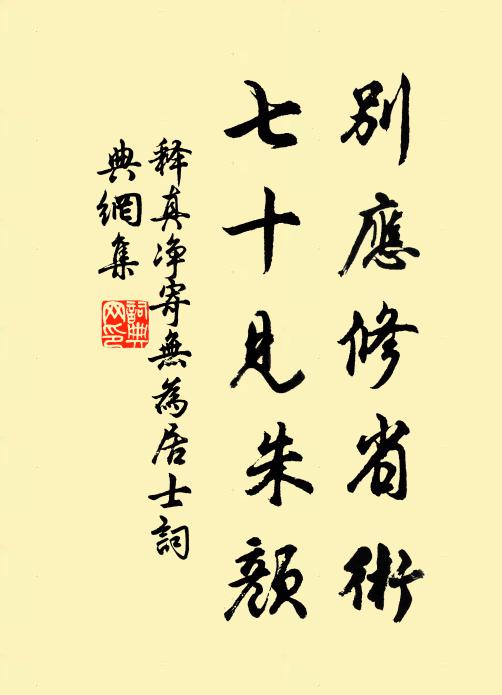 別應修省術
七十見朱顏
釋真净寄無為居士詞
典網集
詞典網印